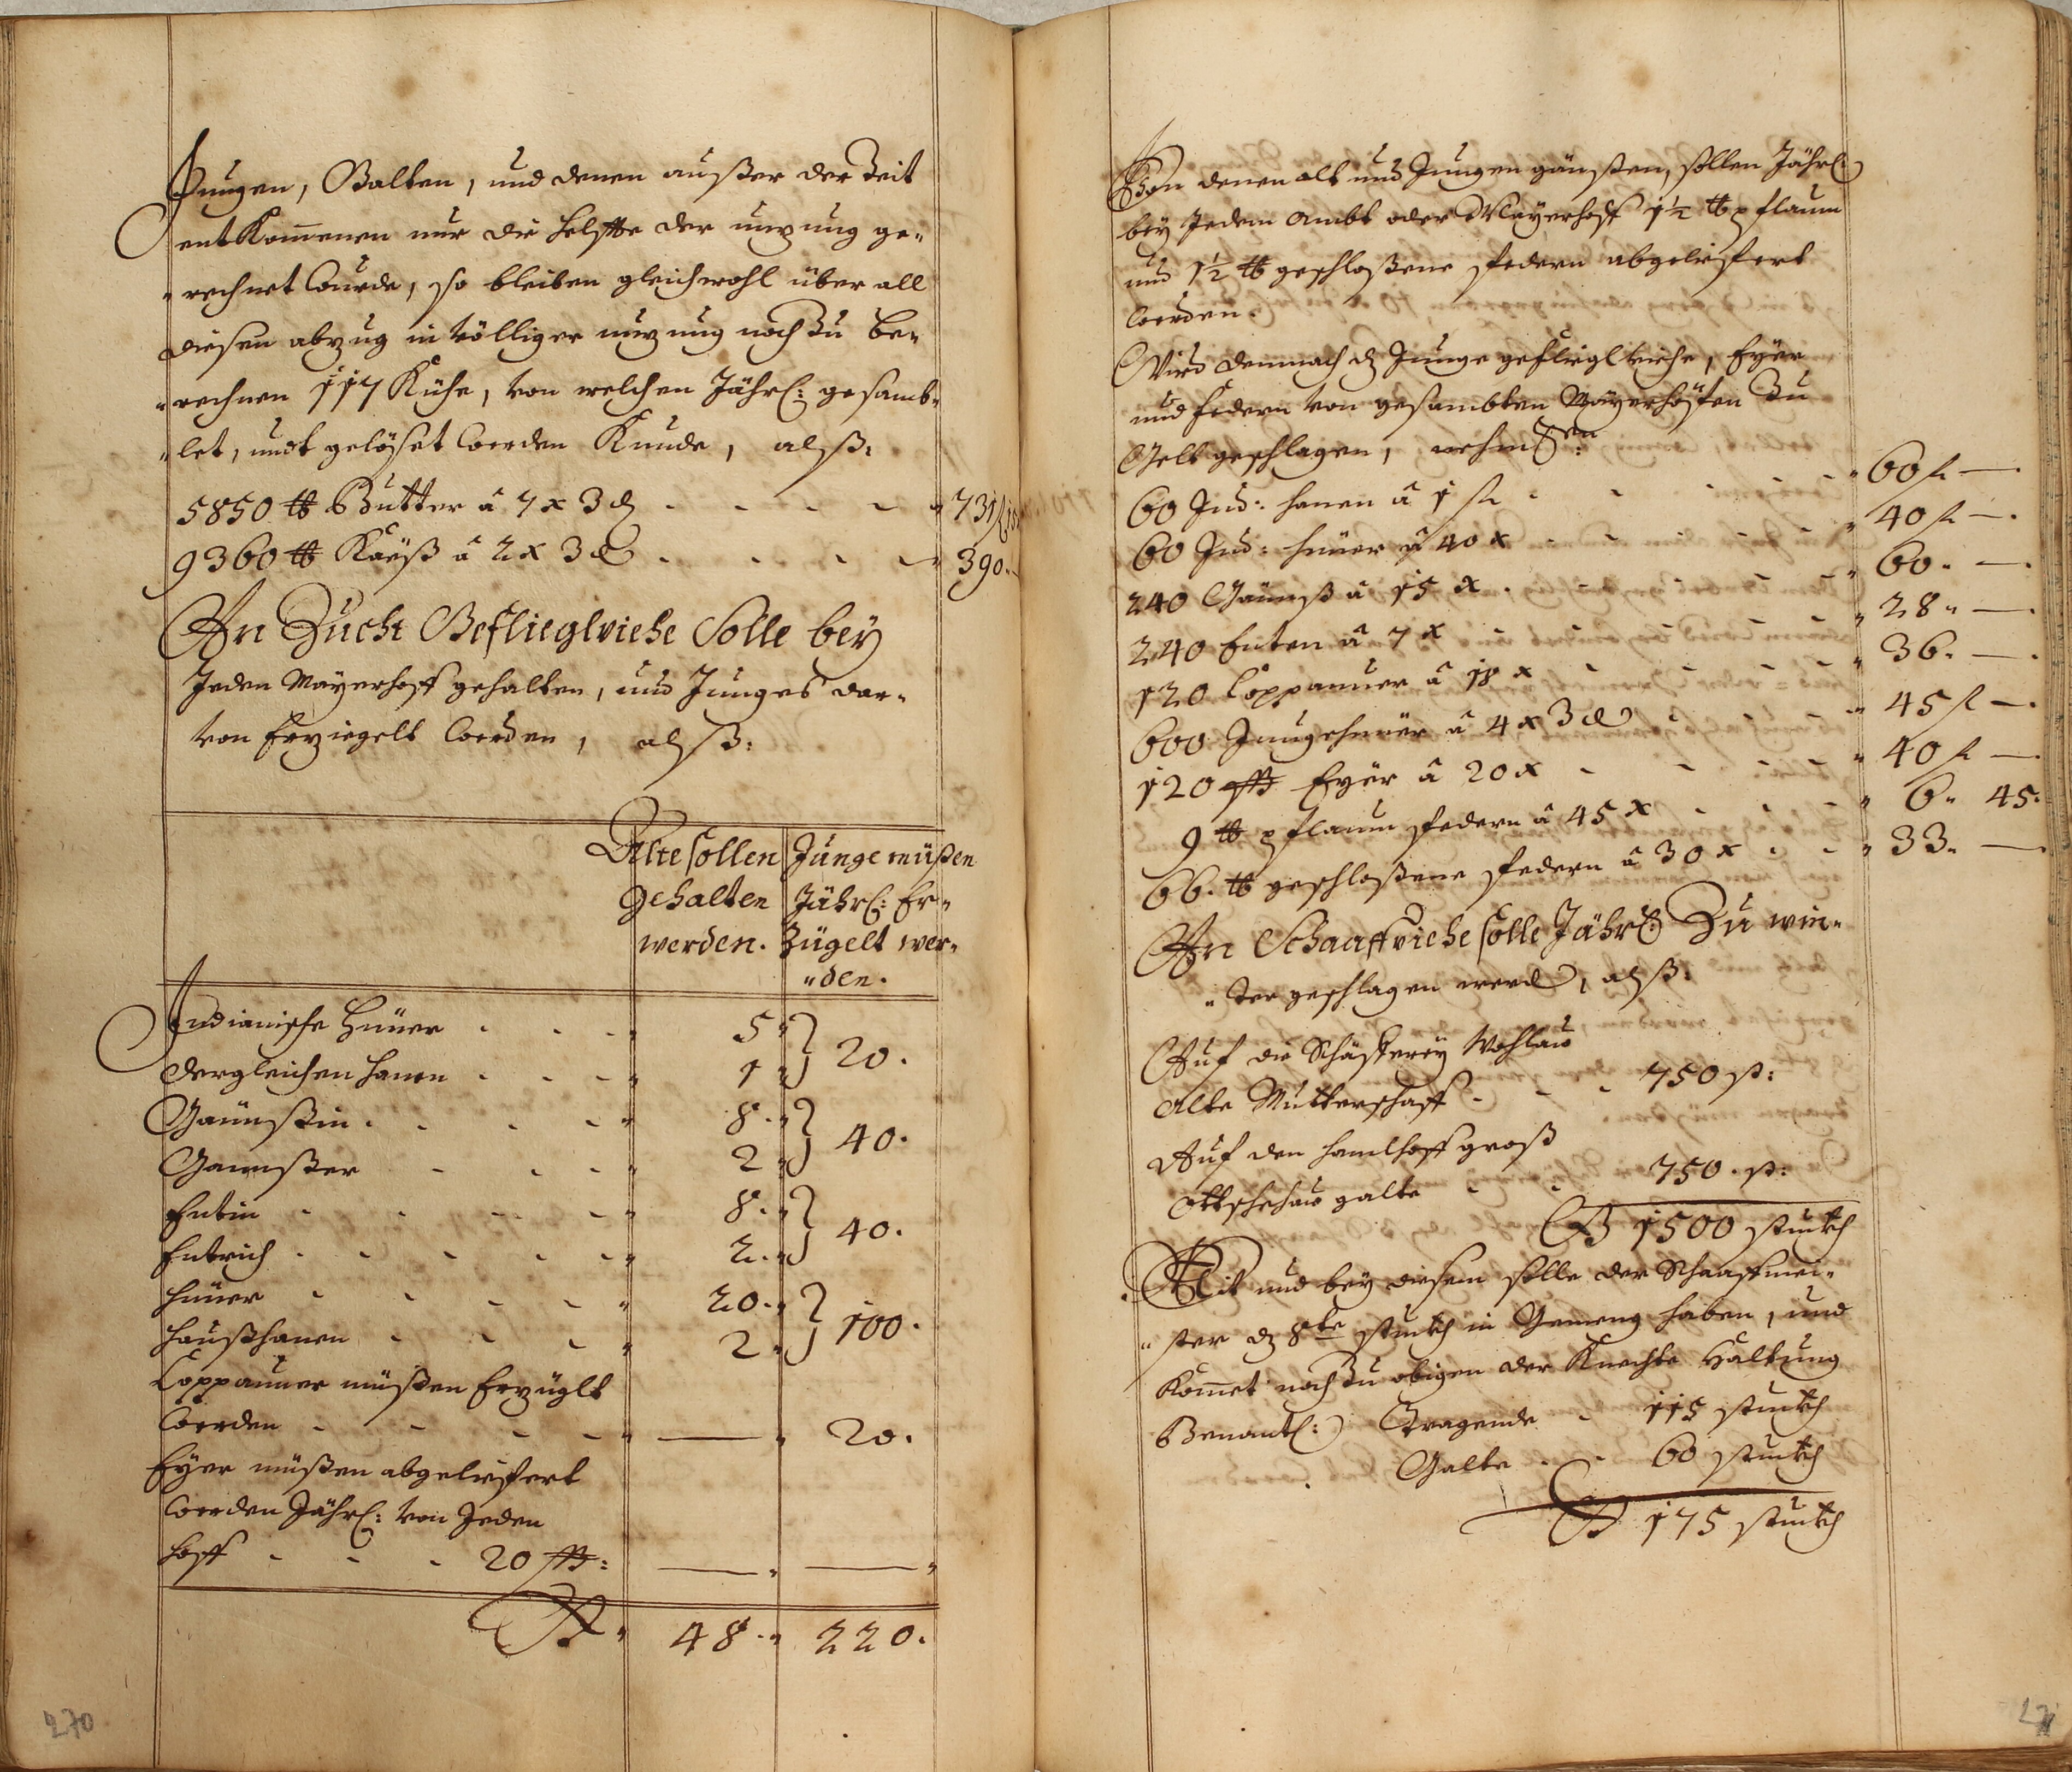 Jungen, Galten, und denen außer der Zeit
entkommenen nur die helffte der nuzung ge„
„rechnet wurde, so bleiben gleichwohl über all
diesen abzug in völliger nuzung noch zu be„
„rechnen 117 Kühe, von welchen Jährl: gesamb„
„let, undt gelöset werden Kunde, alß:
5850 ℔ Butter â 7 x 3 ₰ - - - - „ 731 f 15
9360 ℔ Käyß â 2 x 3 ₰ - - - - „ 390.-
An Zucht Geflieglviehe Solle bey
Jeden Mayerhoff gehalten, und Junges dar„
von Erziegelt werden, alß:
Alte sollen
gehalten
werden.
Junge müßen
Jährl: Er„
Zügelt wer„
„den.
Indianische Hüner - - - „ 5 „ } 20.
dergleichen hanen - - - „ 1 „
Gäunßin - - - - „ 8. „ } 40.
Ganußer - - - „ 2 „
Entin - - - - „ 8. „ } 40.
Entrich - - - - - „ 2. „
hüner - - - - „ 20. „ } 100.
haußhanen - - - „ 2 „
Coppauner müßen Erzüglt
werden - - - - „ — „ 20.
Eyer müßen abgeliefert
werden Jährl: von Jeden
hoff - - - 20 ßß: — „ — „
S. „ 48. „ 220.
270
Von denen alt und Jungen gäunßen, sollen Jährl:
bey Jedem Ambt oder Mayerhoff 1½ ℔ pflaum
und 1½ ℔ geschloßene federn abgeliefert
werden.
Wird demnach dz Junge geflieglviehe, Eyer
und federn von gesambten Mayerhöfen zu
Gelt geschlagen, nehml:en
60 Ind: hanen â 1 f - - - - „ 60 f —.
60 Ind: hüner â 40 x - - - - „ 40 f —.
240 Gäunß â 15 x - - - - „ 60. —.
240 Enten â 7 x - - - - „ 28 „ —.
120 Coppauner â 18 x - - - - „ 36. —.
600 Junge hüner â 4 x 3 ₰ - - - „ 45 f —.
120 ßß Eyer â 20 x - - - - „ 40 f —
9 ℔ pflaum federn â 45 x - - - „ 6. 45.
66. ℔ geschloßene federn â 30 x - - „ 33. —
An Schaaffviehe solle Jährl: Zu win„
„ter geschlagen werden, alß:
Auf die Schäfferey Wohlau
alte Mutterschaff - - - 750 st:
Auf den hamlhoff groß
Ottschehau galte - - 750. st:
S 1500 stuckh
Mit und bey diesem solle der Schaaffmei„
„ster dz 8te stuckh in Gemeng haben, und
Kommet noch zu obigen der Knechte Haltung
Benantl: Tragende - 115 stuckh
Galte - - 60 stuckh
S 175 stuckh
271